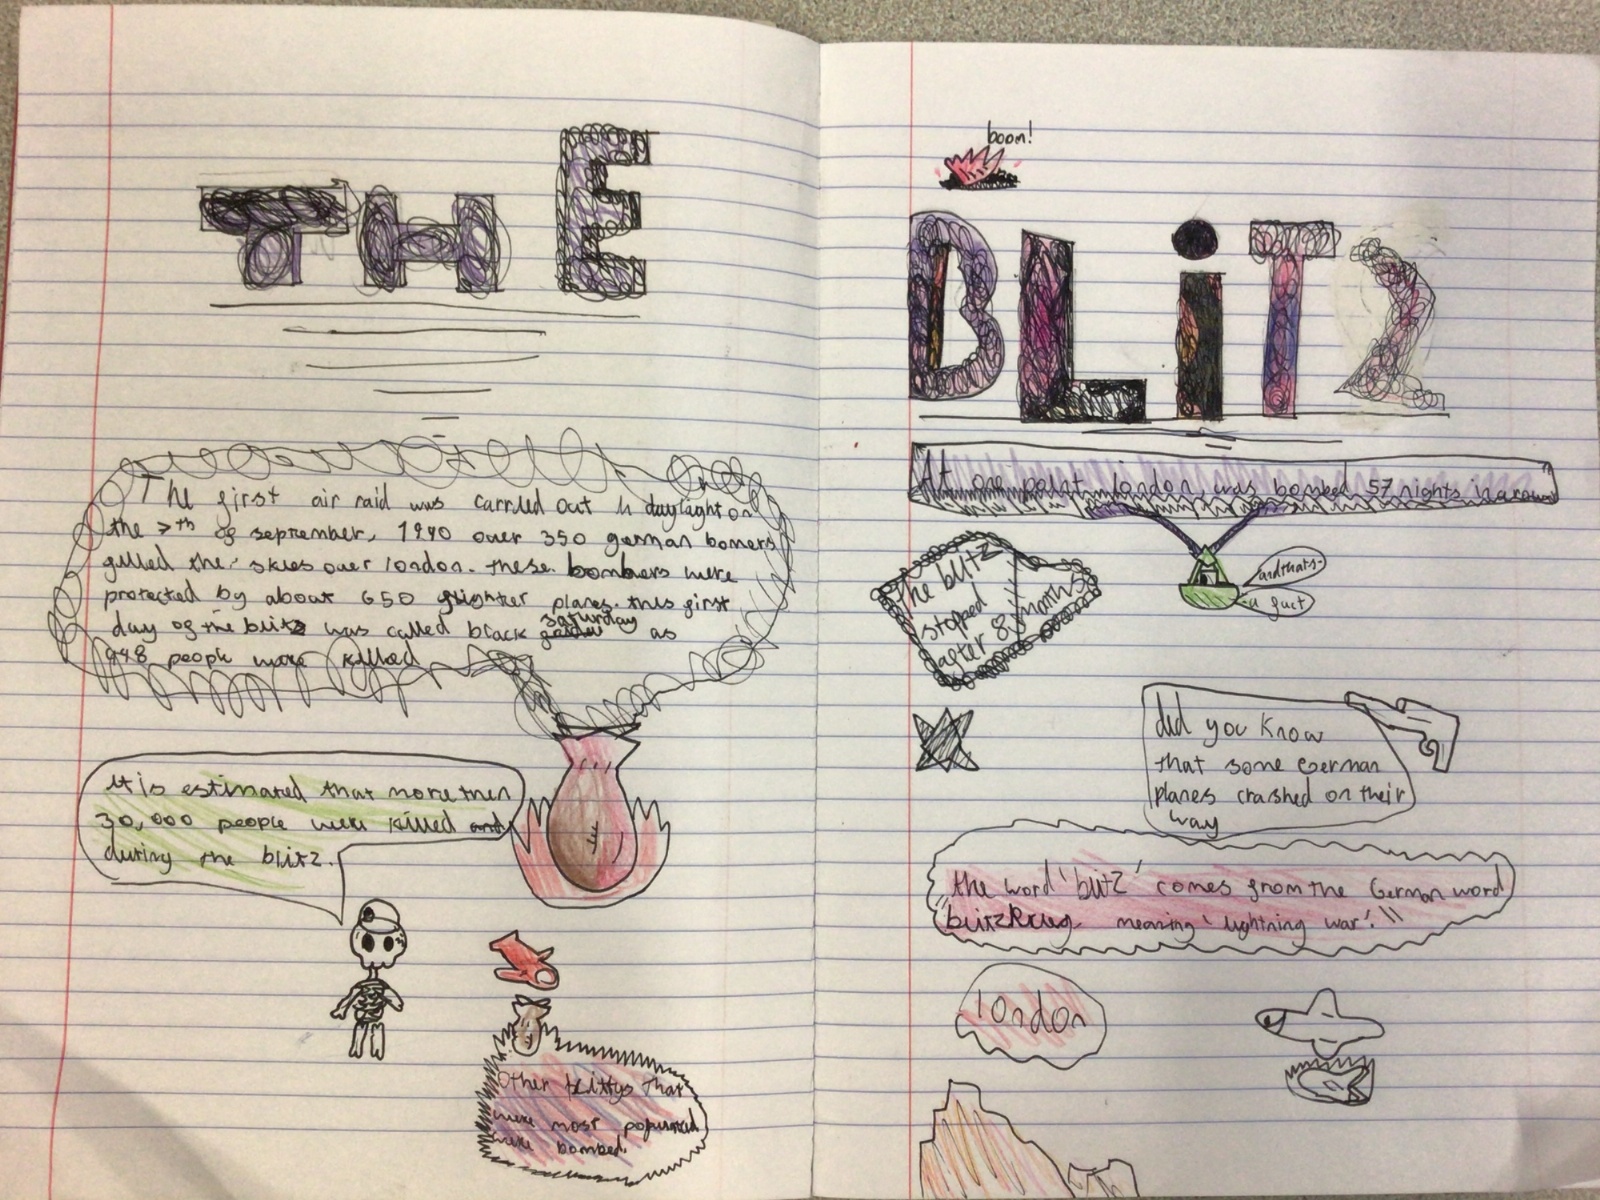 THE
The first air raid was carried out in daylight on
the 7th of september, 1940 over 350 german bomers
filled the skies over london. these bombers were
protected by about 650 flighter planes. this first
day of the blitz was called black saturday as
448 people were killed
It is estimated that more then
30,000 people were killed and
during the blitz.
Other that
were most populated
were bombed.
boom!
BLiTZ
At one point london was bombed 57 nights in a row
the blitz
stopped
after 8 months
and thats
a fact
did you know
that some German
planes crashed on their
way
the word 'blitz' comes from the German word
blitzkrieg meaning 'lightning war'!!
london